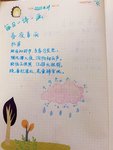 每日一诗一画
春夜喜雨
杜甫
好雨知时节，当春乃发生。
随风潜入夜，润物细无声。
野径云俱黑，江船火独明。
晓看红湿处，花重锦官城。